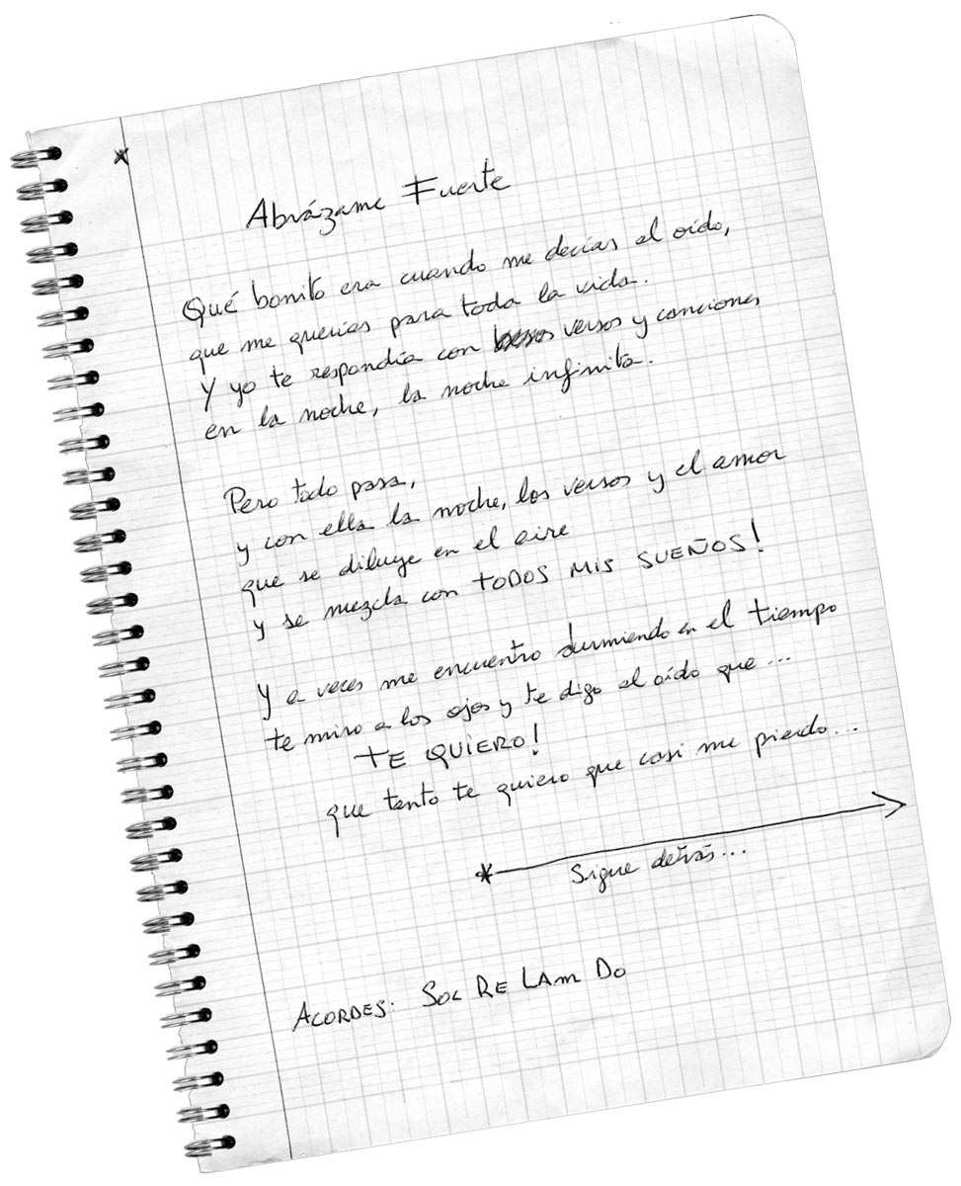 Abrázame Fuerte
Qué bonito era cuando me decías al oído,
que me querías para toda la vida.
Y yo te respondía con versos y canciones
en la noche, la noche infinita.
Pero todo pasa,
y con ella la noche, los versos y el amor
que se diluye en el aire
y se mezcla con TODOS MIS SUEÑOS!
Y a veces me encuentro durmiendo en el tiempo
te miro a los ojos y te digo al oído que...
TE QUIERO!
que tanto te quiero que casi me pierdo...
* Sigue detrás...
ACORDES: SOL RE LAm DO